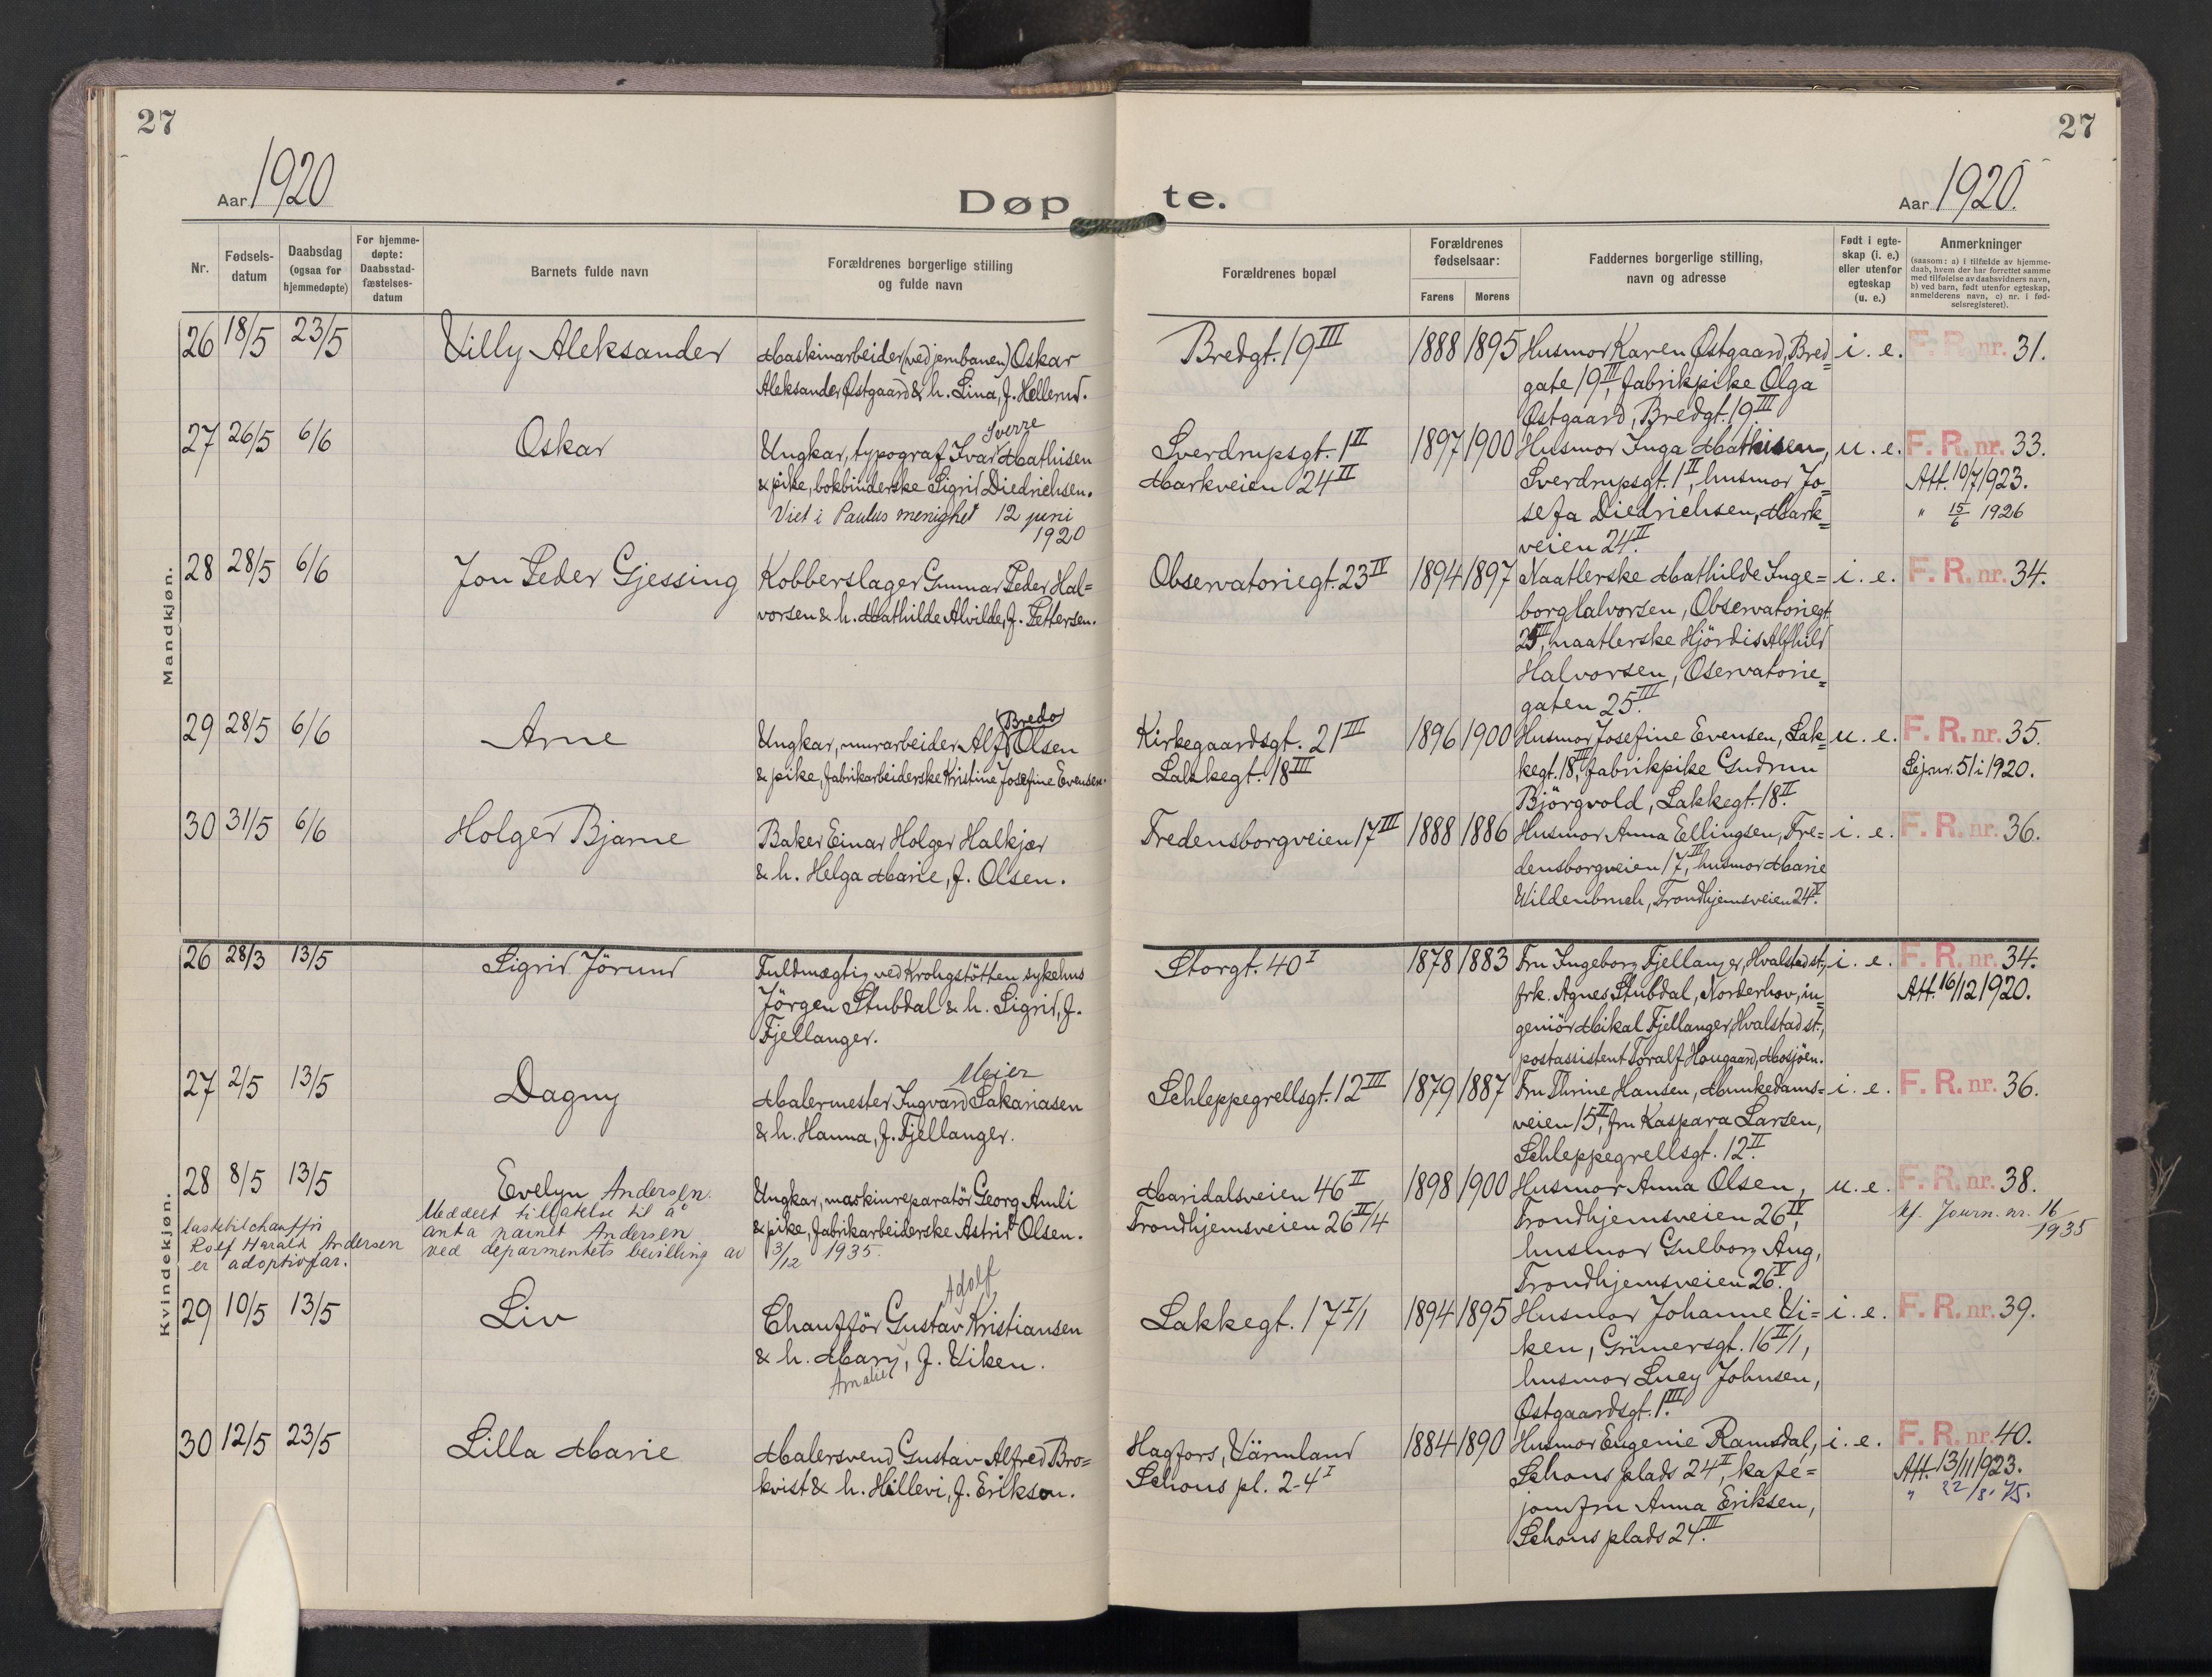 27
27
Aar 1920
Døpte.
Aar 1920.
Nr.
Fødselsdatum
Daabsdag (ogsaa for hjemmedøpte)
For hjemmedøpte: Daabsstadfæstelsesdatum
Barnets fulde navn
Forældrenes borgerlige stilling og fulde navn
Forældrenes bopæl
Forældrenes fødselsaar:
Farens
Morens
Faddernes borgerlige stilling, navn og adresse
Født i egteskap (i. e.) eller utenfor egteskap (u. e.)
Anmerkninger
(saasom: a) i tilfælde av hjemmedaab, hvem der har forrettet samme med tilføielse av daabsvidners navn, b) ved barn, født utenfor egteskap, anmelderens navn, c) nr. i fødselsregisteret).
Mandkjøn.
26 18/5 23/5 Villy Aleksander
Maskinarbeider (ved jernbanen) Oskar
Aleksander Østgaard & h. Lina, f. Hellerud.
Bredgt. 19 III 1888 1895
Husmor Karen Østgaard, Bred=
gate 19 III, fabrikpike Olga
Østgaard, Bredgt. 19 III
i. e. F. R. nr. 31.
27 26/5 6/6 Oskar
Sverre
Ungkar, typograf Ivar Mathisen
& pike, bokbinderske Sigrid Diedrichsen.
Viet i Paulus menighet 12 juni
1920
Sverdrupsgt. 1 II
Markveien 24 II
1897 1900
Husmor Inga Mathisen,
Sverdrupsgt. 1 II, husmor Jo=
sefa Diedrichsen, Mark=
veien 24 II.
u. e. F. R. nr. 33.
Att. 10/7 1923.
" 15/6 1926
28 28/5 6/6 Jon Peder Gjessing
Kobberslager Gunnar Peder Hal=
vorsen & h. Mathilde Alvilde, f. Pettersen.
Observatoriegt. 23 IV 1894 1897
Naatlerske Mathilde Inge=
borg Halvorsen, Observatoriegt.
25 III, naatlerske Hjördis Alfhild
Halvorsen, Oservatorie=
gaten 25 III.
i. e. F. R. nr. 34.
29 28/5 6/6 Arne
Bredo
Ungkar, murarbeider Alf Olsen
& pike, fabrikarbeiderske Kristine Josefine Evensen.
Kirkegaardsgt. 21 III
Lakkegt. 18 III
1896 1900
Husmor Josefine Evensen, Lak=
kegt. 18 III, fabrikpike Gudrun
Björgvold, Lakkegt. 18 II.
u. e. F. R. nr. 35.
Lejr.nr. 51 i 1920.
30 31/5 6/6 Holger Bjarne
Baker Einar Holger Halkjær
& h. Helga Marie, f. Olsen.
Fredensborgveien 17 III 1888 1886
Husmor Anna Eellingsen, Fre=
densborgveien 17 III, husmor Marie
Wildenbruch, Trondhjemsveien 24 V.
i. e. F. R. nr. 36.
Kvindekjøn.
26 28/3 13/5 Sigrid Jörund
Fuldmægtig ved Krohgstötten sykehus
Jörgen Stubdal & h. Sigrid, f.
Fjellanger.
Storgt. 40 I 1878 1883
Fru Ingeborg Fjellanger, Hvalstad st.,
frk. Agnes Stubdal, Norderhov, in=
geniör Mikal Fjellanger, Hvalstad st.,
postassistent Toralf Hougaard, Mosjöen.
i. e. F. R. nr. 34.
Att. 16/12 1920.
27 2/5 13/5 Dagny
Meier
Malermester Ingvard Sakariasen
& h. Hanna, f. Fjellanger.
Schleppegrellsgt. 12 III 1879 1887
Fru Thrine Hansen, Munkedams=
veien 15 II, fru Kaspara Larsen,
Schleppegrellsgt. 12 II.
i. e. F. R. nr. 36.
28 8/5 13/5 Evelyn Andersen.
Meddelt tillatelse til å
anta navnet Andersen
ved deparmentets bevilling av 3/12 1935.
lastebilchauffør
Rolf Harald Andersen
er adoptivfar.
Ungkar, maskinreparatör Georg Amli
& pike, fabrikarbeiderske Astrid Olsen.
Maridalsveien 46 II
Trondhjemsveien 26 II/4
1898 1900
Husmor Anna Olsen,
Trondhjemsveien 26 IV,
husmor Gulborg Aug,
Trondhjemsveien 26 V.
u. e. F. R. nr. 38.
kf. Journ. nr. 16
1935
29 10/5 13/5 Liv
Adolf
Chauffør Gustav Kristiansen
& h. Mary, f. Viken.
Amalie
Lakkegt. 17 I/1 1894 1895
Husmor Johanne Vi=
ken, Grünersgt. 16 II/1,
husmor Lucy Johnsen,
Østgaardsgt. 1 III.
i. e. F. R. nr. 39.
30 12/5 23/5 Lilla Marie
Malersvend Gustav Alfred Bro=
kvist & h. Hillevi, f. Erikson.
Hagfors, Värmland
Schous pl. 2-4 I
1884 1890
Husmor Eugenie Ramsdal,
Schous plads 24 II, kafé=
jomfru Anna Eriksen,
Schous plads 24 III.
i. e. F. R. nr. 40.
Att. 13/11 1923.
" 22/8. 75.